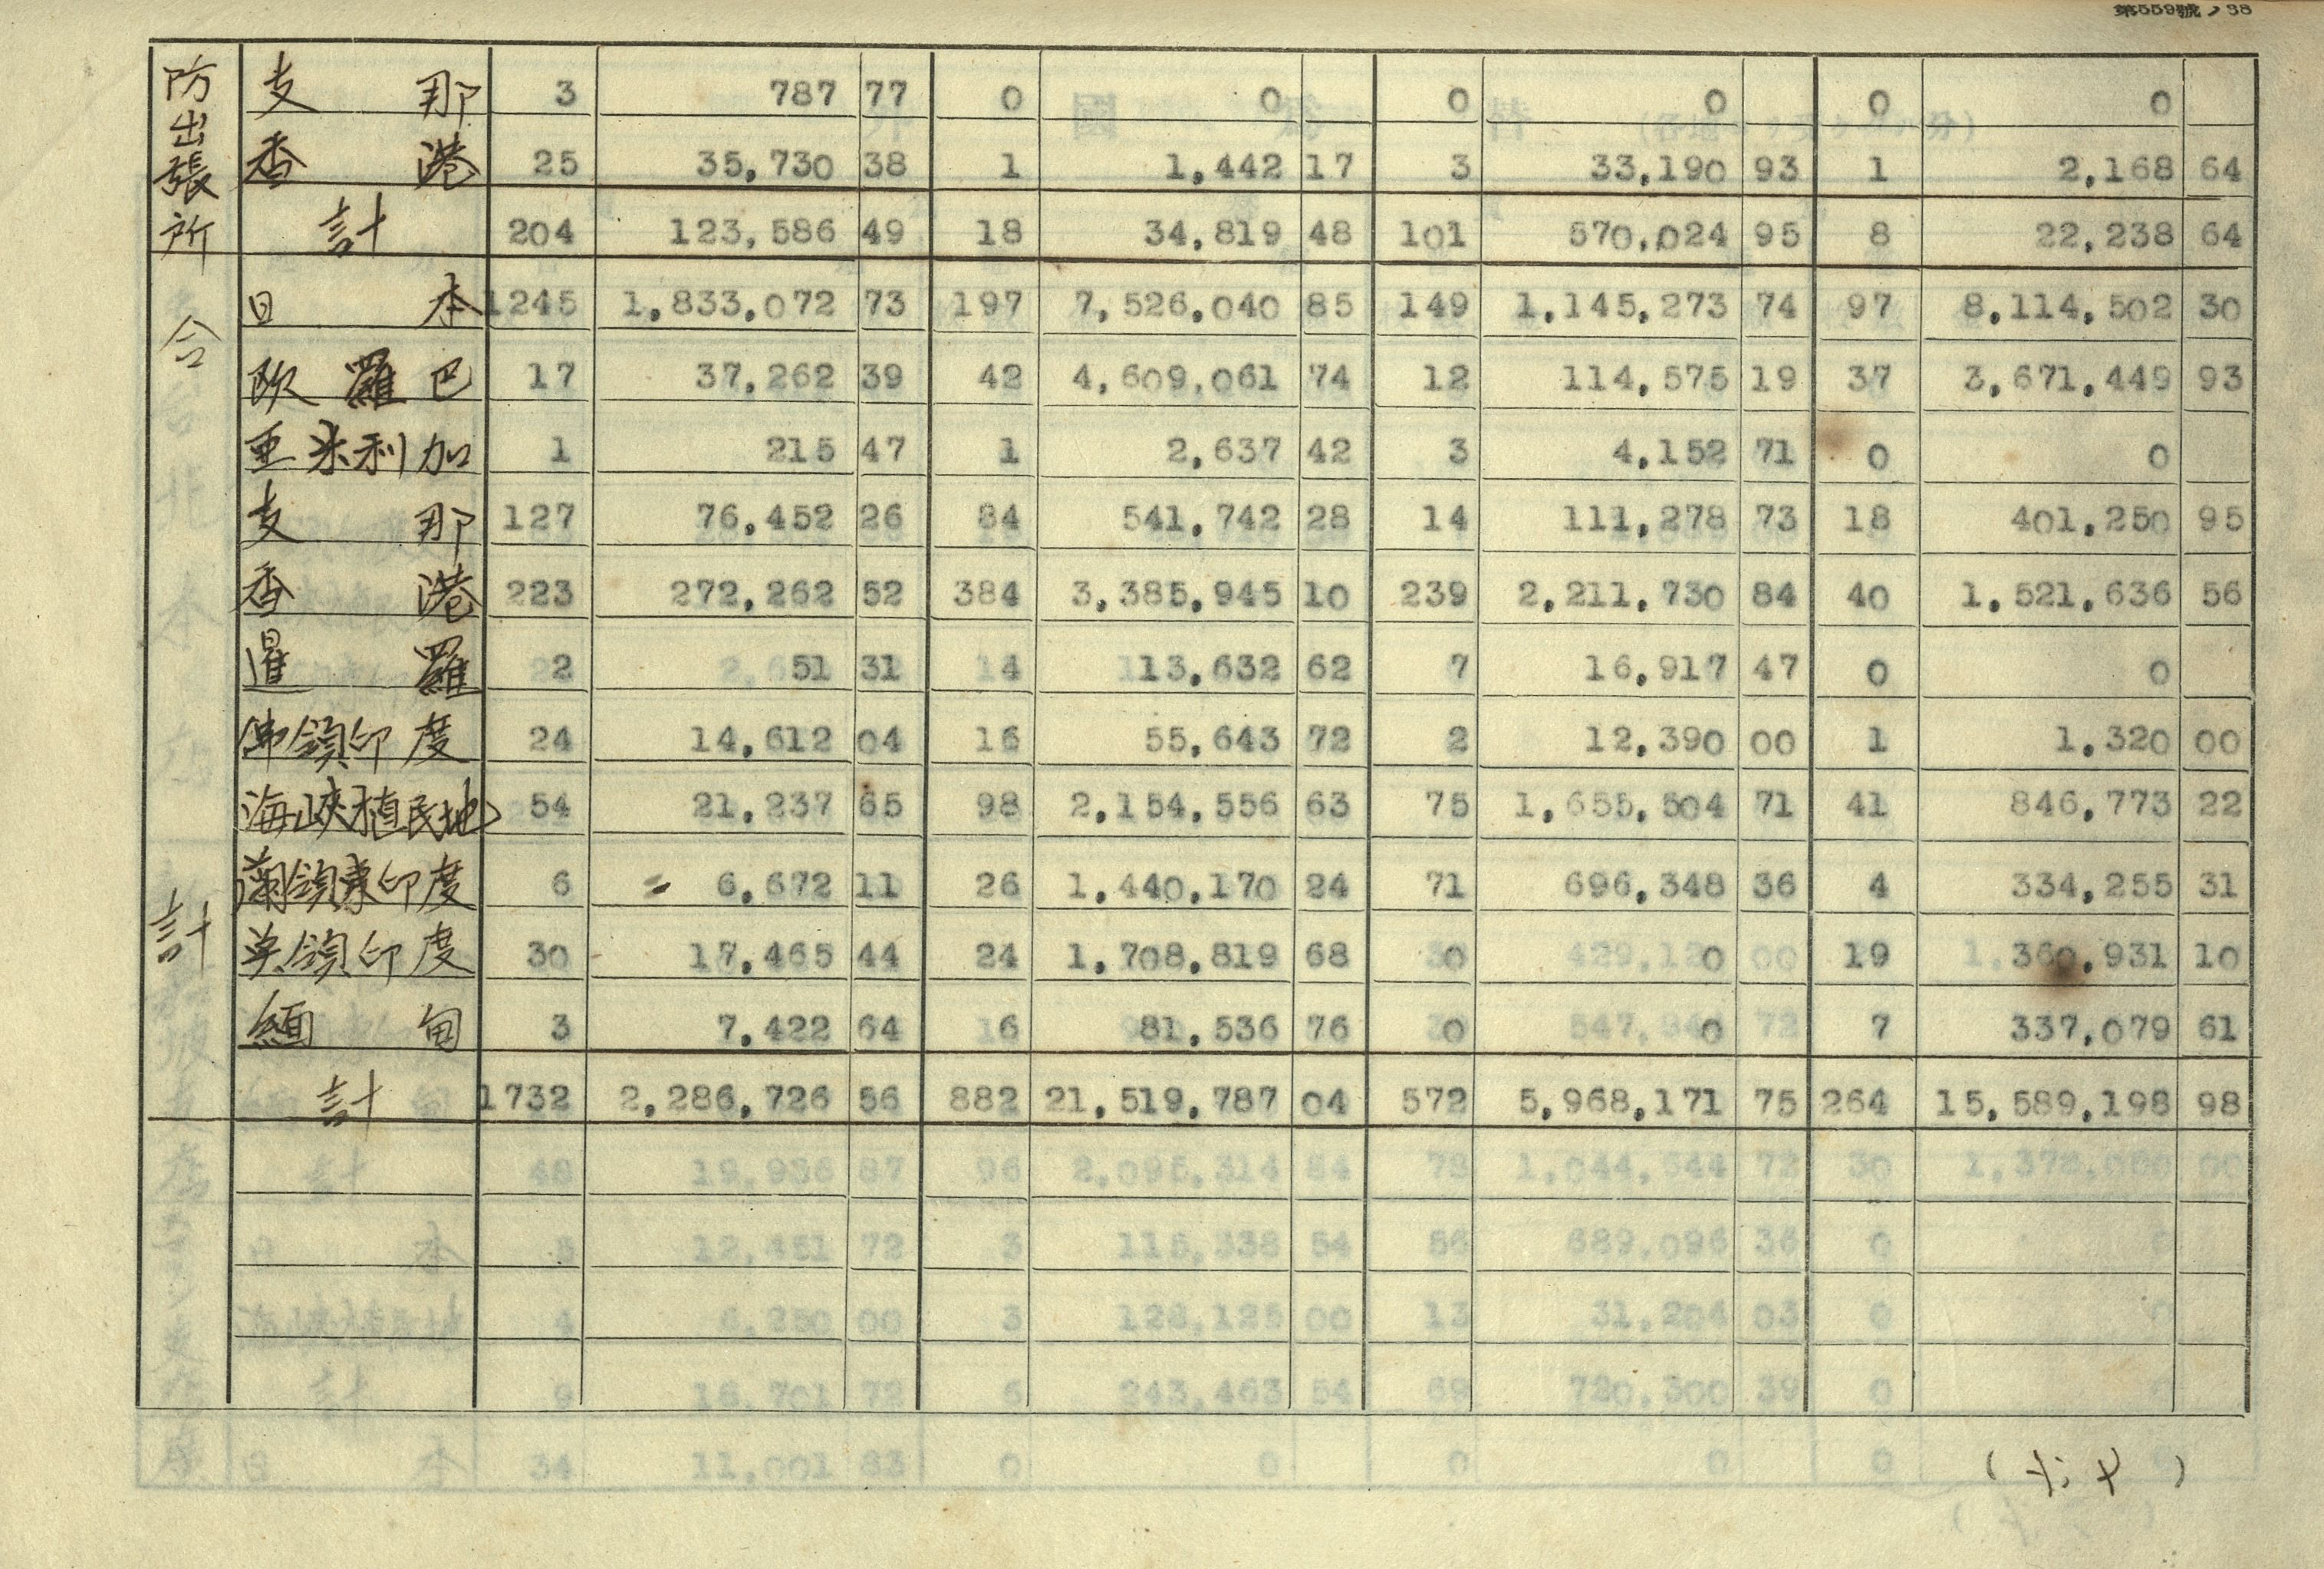 第559號ノ38
防出張所
支那 3 787 77 0 0 0 0 0 0
香港 25 35,730 38 1 1,442 17 3 33,190 93 1 2,168 64
計 204 123,586 49 18 34,819 48 101 570,024 95 8 22,238 64
合計
日本 1245 1,833,072 73 197 7,526,040 85 149 1,145,273 74 97 8,114,502 30
欧羅巴 17 37,262 39 42 4,609,061 74 12 114,575 19 37 2,671,449 93
亜米利加 1 215 47 1 2,637 42 3 4,152 71 0 0
支那 127 76,452 26 84 541,742 28 14 111,278 73 18 401,250 95
香港 223 272,262 52 384 3,385,945 10 239 2,211,730 84 40 1,521,636 56
暹羅 2 51 31 4 13,632 62 7 16,917 47 0 0
佛領印度 24 14,612 04 16 55,643 72 2 12,390 00 1 1,320 00
海峽植民地 54 21,237 65 98 2,154,556 63 75 1,655,504 71 41 846,773 22
蘭領東印度 6 6,672 11 26 1,440,170 24 71 696,348 36 4 334,255 31
英領印度 30 17,465 44 24 1,708,819 68 0 0 19 1,360,931 10
緬甸 3 7,422 64 6 81,536 76 0 0 7 337,079 61
計 1732 2,286,726 56 882 21,519,787 04 572 5,968,171 75 264 15,589,198 98